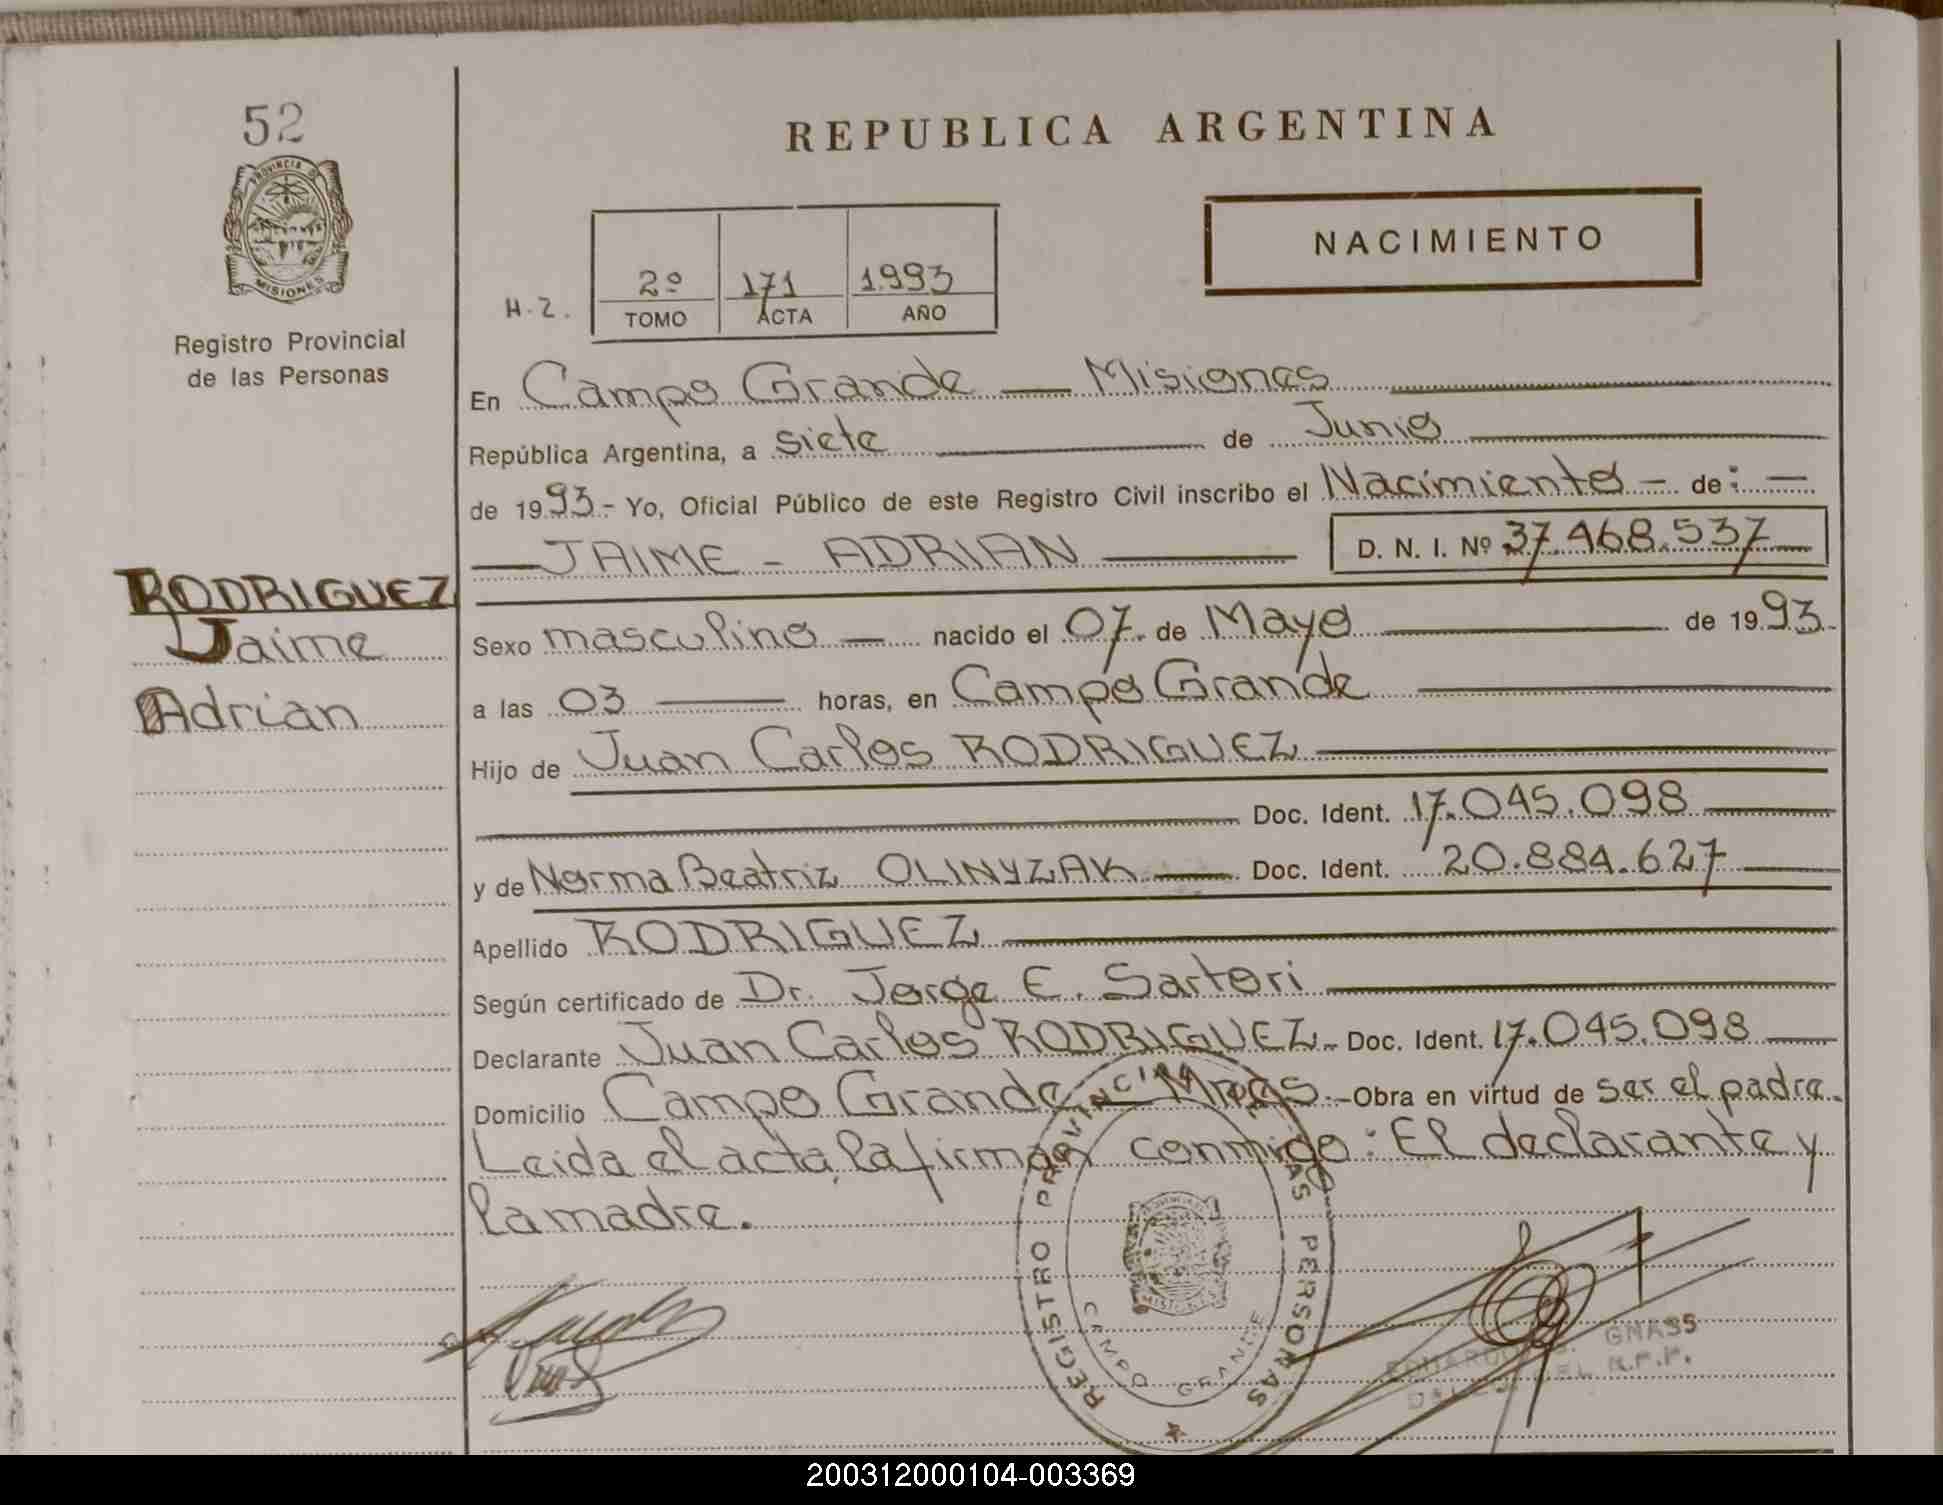 52
PROVINCIA DE
MISIONES
Registro Provincial
de las Personas
RODRIGUEZ
Jaime
Adrian
REPUBLICA ARGENTINA
NACIMIENTO
H.Z. 2º 171 1993
TOMO ACTA AÑO
En Campo Grande — Misiones
República Argentina, a siete de Junio
de 1993.- Yo, Oficial Público de este Registro Civil inscribo el Nacimiento - de: —
— JAIME - ADRIAN — D. N. I. Nº 37.468.537
Sexo masculino — nacido el 07 de Mayo de 1993.
a las 03 — horas, en Campo Grande
Hijo de Juan Carlos RODRIGUEZ
Doc. Ident. 17.045.098
y de Norma Beatriz OLINYZAK — Doc. Ident. 20.884.627
Apellido RODRIGUEZ
Según certificado de Dr. Jorge E. Sartori
Declarante Juan Carlos RODRIGUEZ.- Doc. Ident. 17.045.098
Domicilio Campo Grande - Mnes.- Obra en virtud de ser el padre.
Leida el acta, la firman conmigo: El declarante y
la madre.
REGISTRO PROVINCIAL DE LAS PERSONAS
MISIONES
CAMPO GRANDE
GNASS
200312000104-003369